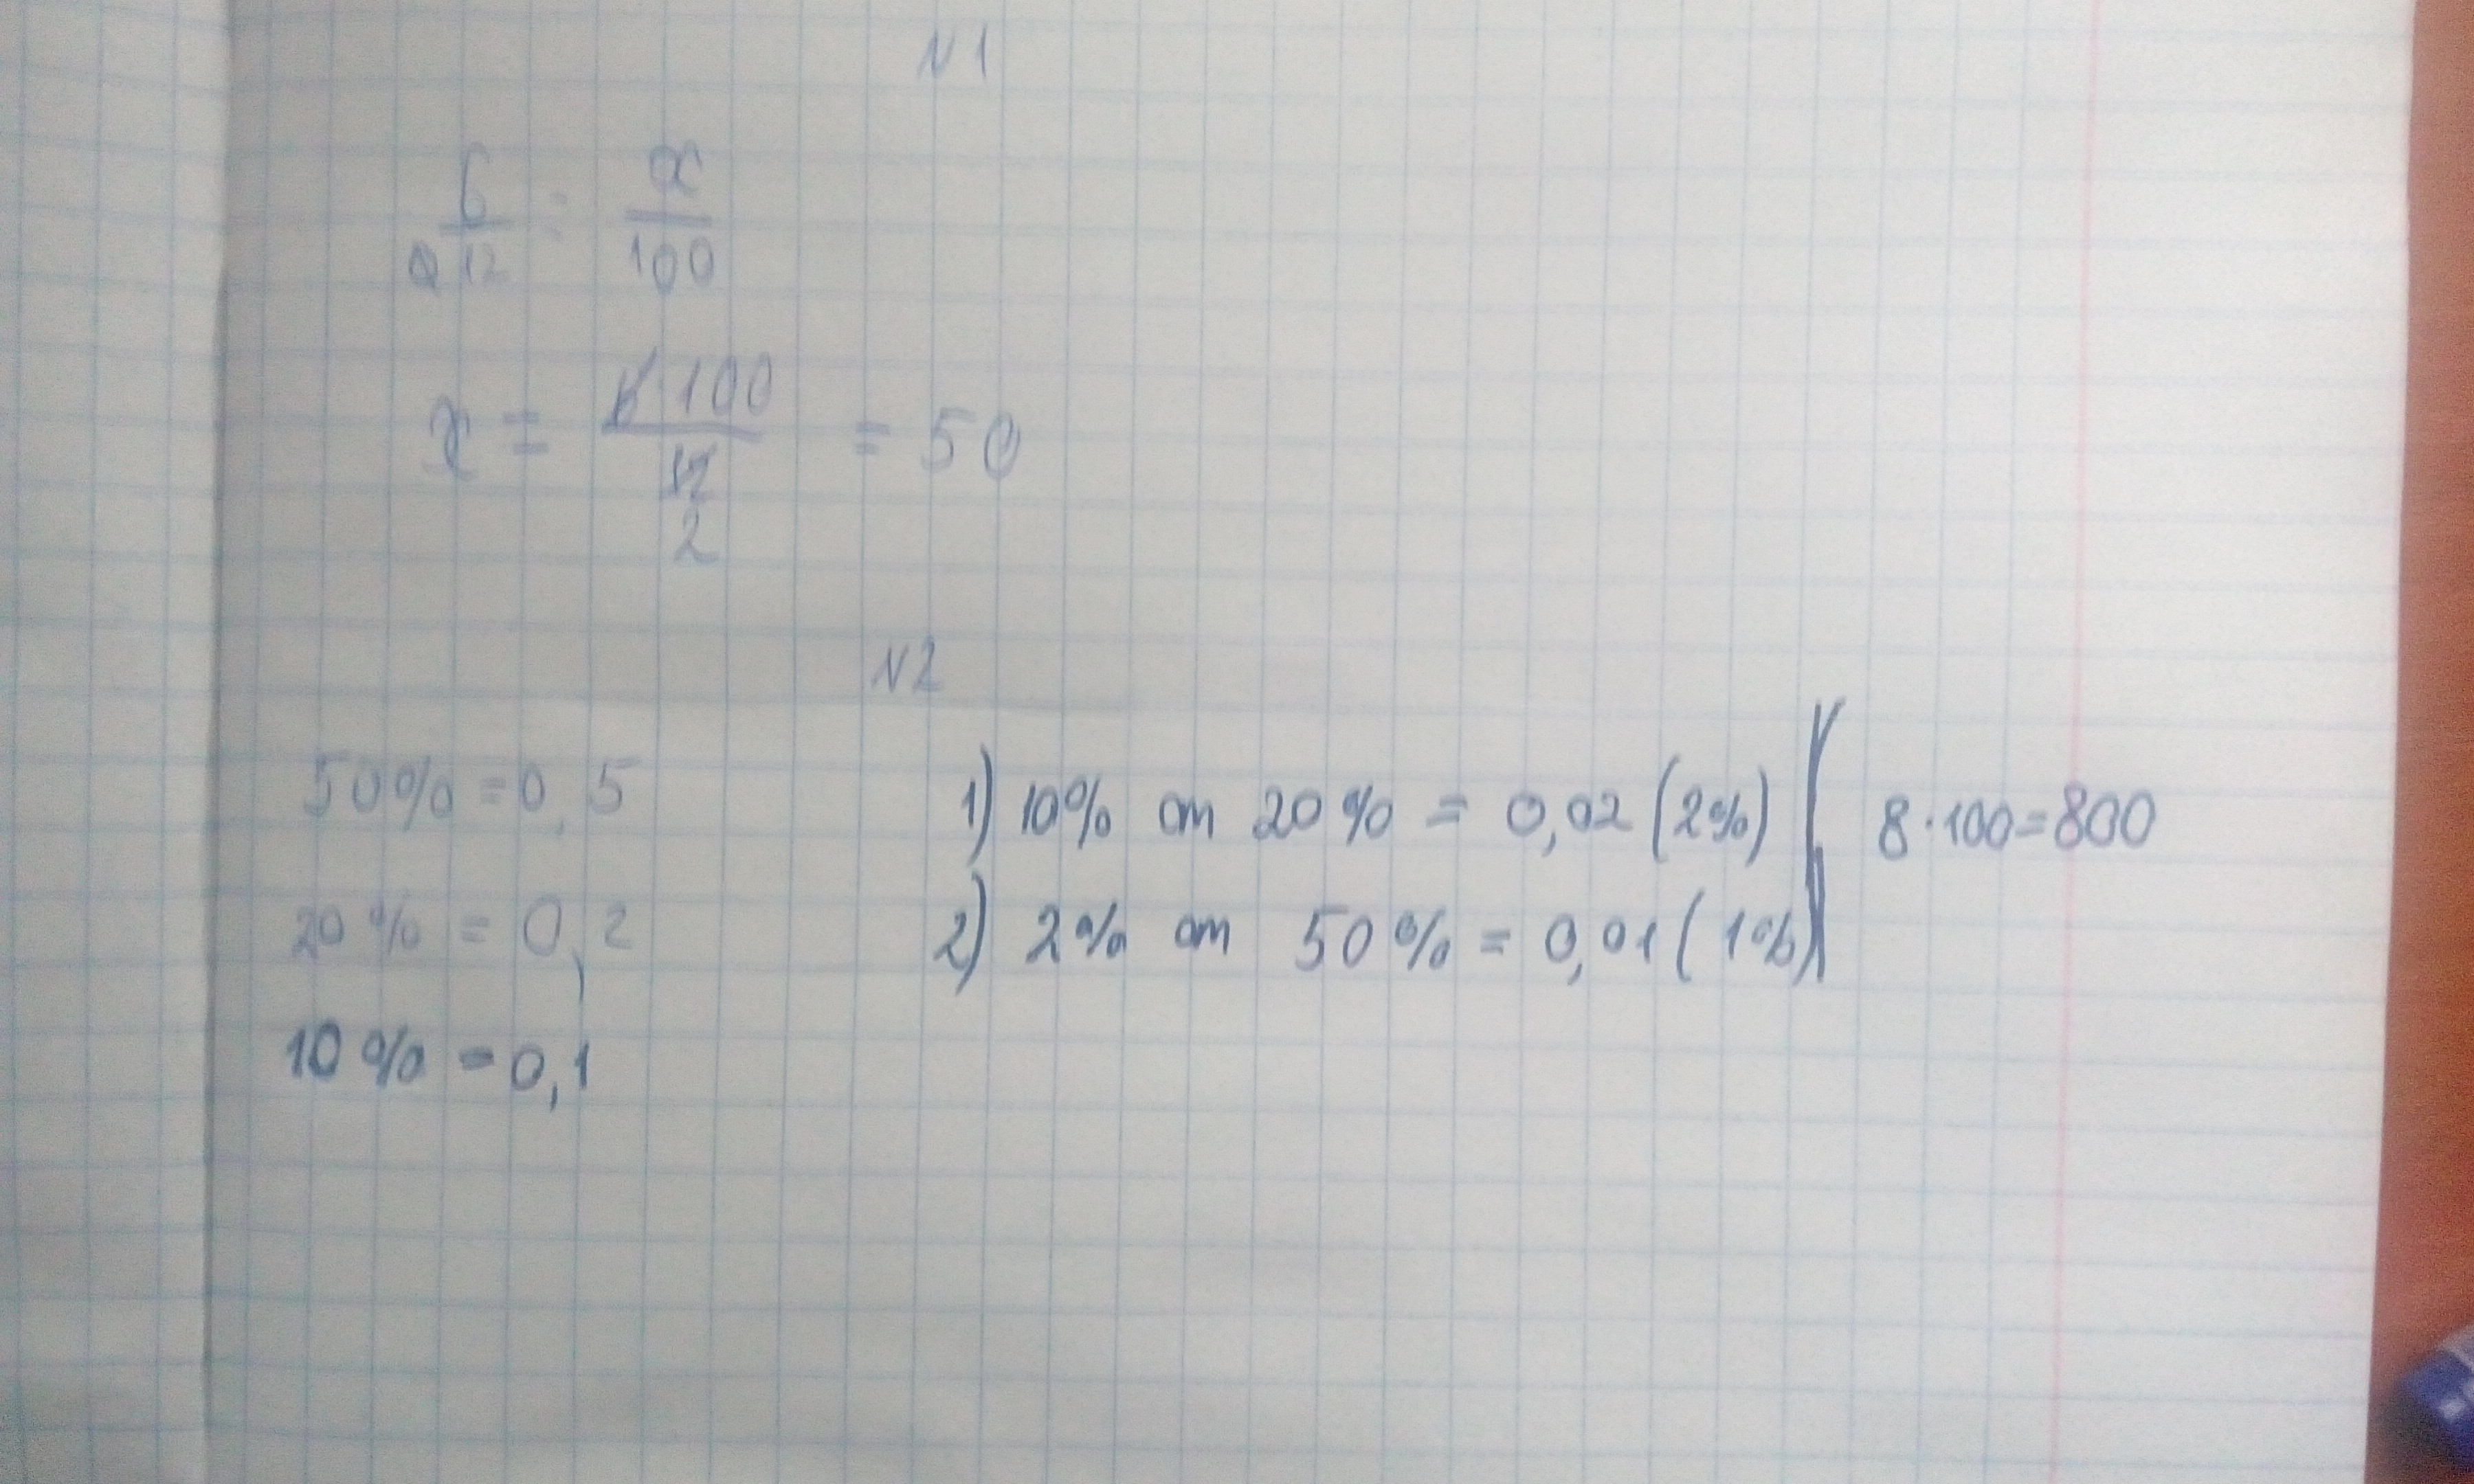 N1
6/12 = x/100
x = 6·100/12 = 50
2
N2
50% = 0,5
20% = 0,2
10% = 0,1
1) 10% от 20% = 0,02 (2%)
2) 2% от 50% = 0,01 (1%)
8·100=800